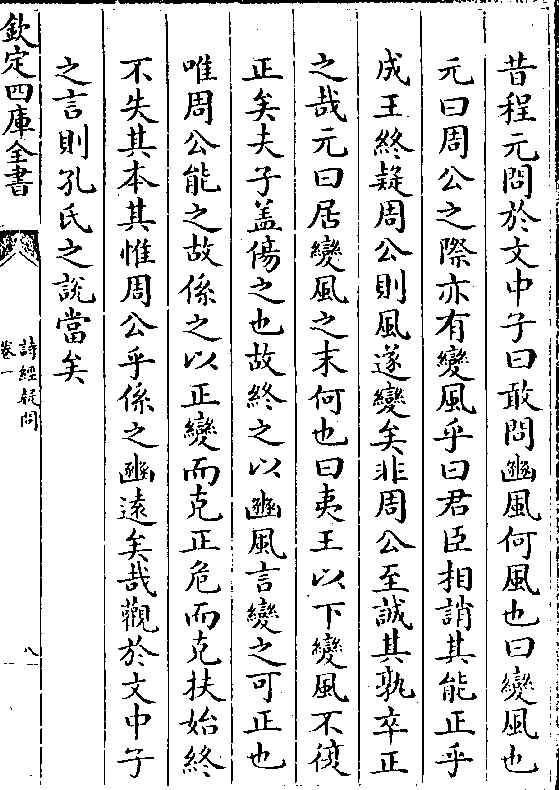 昔程元問於文中子曰敢問豳風何風也曰變風也
元曰周公之際亦有變風乎曰君臣相誚其能正乎
成王終疑周公則風遂變矣非周公至誠其孰卒正
之哉元曰居變風之末何也曰夷王以下變風不復
正矣夫子盖傷之也故終之以豳風言變之可正也
唯周公能之故係之以正變而克正危而克扶始終
不失其本其惟周公乎係之豳遠矣哉觀於文中子
之言則孔氏之說當矣
欽定四庫全書
詩經疑問
卷一
八